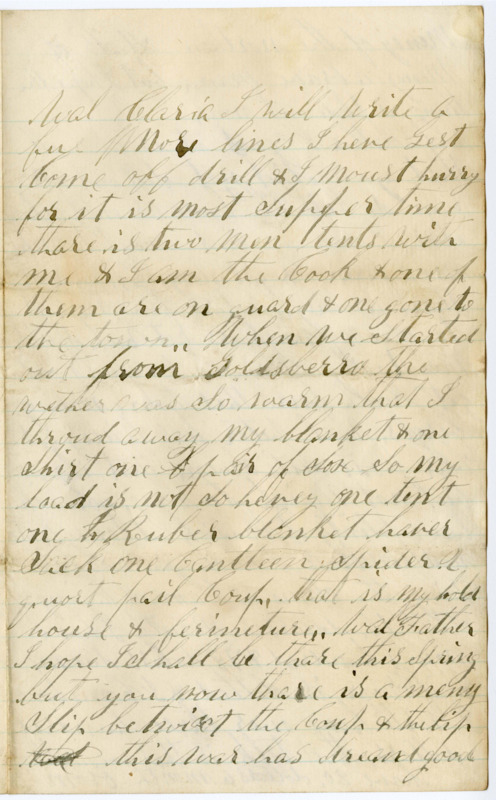 Wal Claria I will Write a
fu More lines I heve Gest
Come off drill & I Moust hurry
for it is most Supper time
thare is two Men tents with
me & I am the Cook & one of
them are on guard & one gone to
the town,, When we started
out from Goldsberra the
wether was So warm that I
throud away my blanket & one
Shirt one pair of Sox So my
load is not So hevey one tent
one Ruber blanket haver
Sack one Cantteen Spider
quort pail Coup, that is my hold
house & ferineture,, Wal Father
I hope I Shall be thare this Spring
but you now thare is a meny
Slip betwixt the Coup & the lip
this war has dreand good